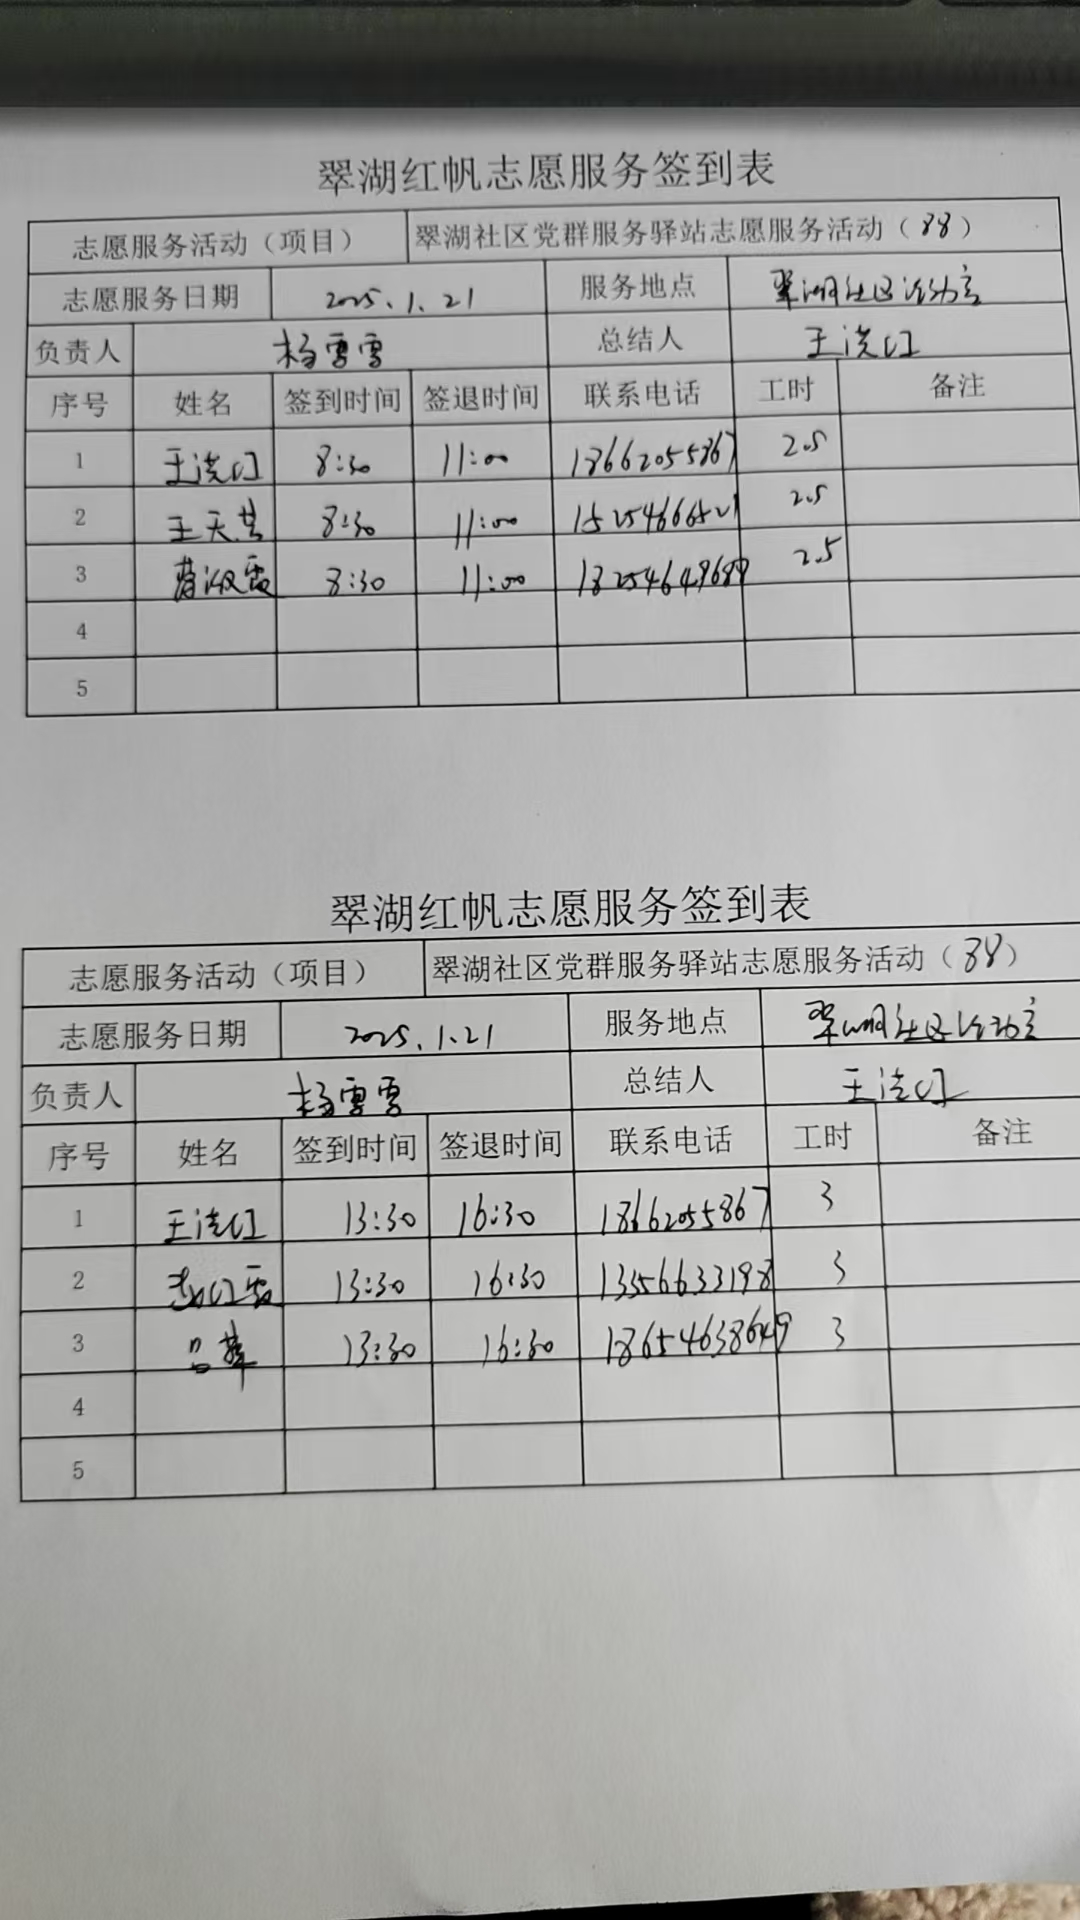 翠湖红帆志愿服务签到表
志愿服务活动（项目） 翠湖社区党群服务驿站志愿服务活动（88）
志愿服务日期 2025.1.21 服务地点 翠湖社区活动室
负责人 杨雪雪 总结人 王洪江
序号 姓名 签到时间 签退时间 联系电话 工时 备注
1 王洪江 8:30 11:00 18662055867 2.5
2 王天芸 8:30 11:00 2.5
3 蔡淑霞 8:30 11:00 2.5
4
5
翠湖红帆志愿服务签到表
志愿服务活动（项目） 翠湖社区党群服务驿站志愿服务活动（88）
志愿服务日期 2025.1.21 服务地点 翠湖社区活动室
负责人 杨雪雪 总结人 王洪江
序号 姓名 签到时间 签退时间 联系电话 工时 备注
1 王洪江 13:30 16:30 18662055867 3
2 13:30 16:30 13356633198 3
3 13:30 16:30 18654638649 3
4
5